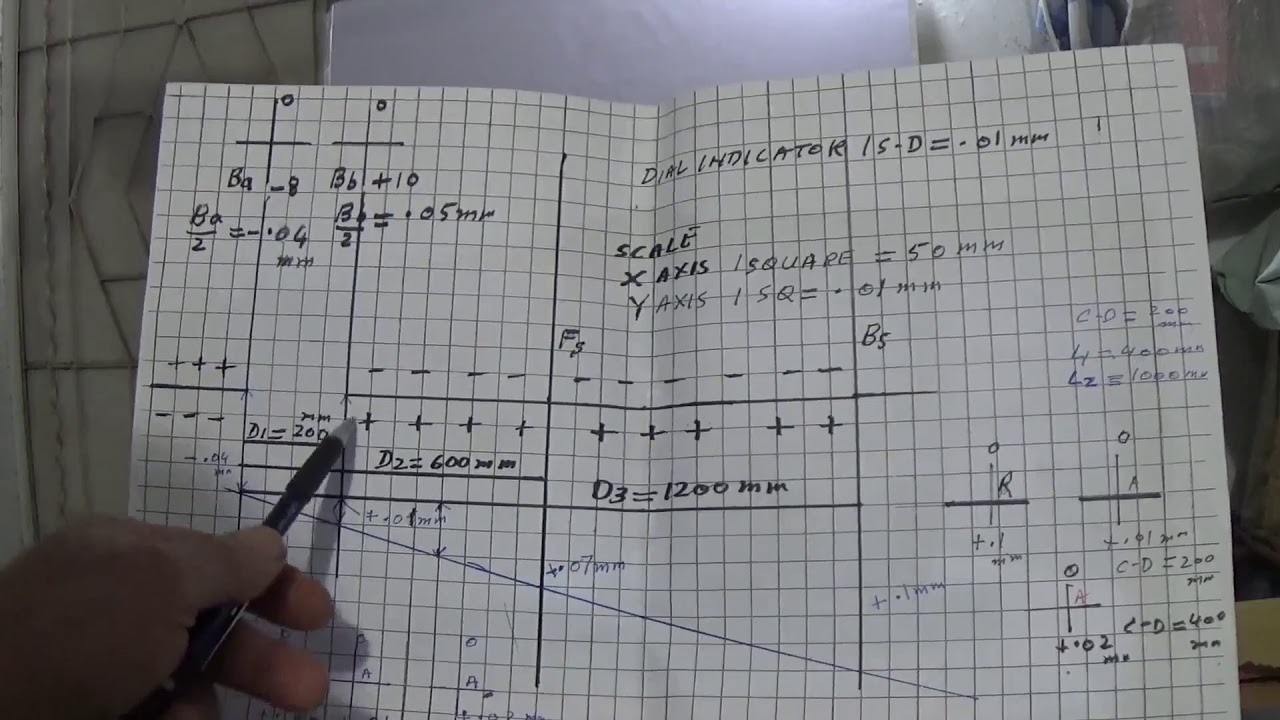 0 0
Ba -8 Bb +10
Ba/2 = -.04 mm
Bb/2 = .05 mm
DIAL INDICATOR 1S-D = .01 mm
SCALE
X AXIS 1SQUARE = 50 mm
Y AXIS 1 SQ = .01 mm
C-D = 200 mm
L1 = 400 mm
L2 = 1000 mm
+ + +
- - -
Fs
Bs
- - - - - - - - - -
+ + + + + + + + +
D1 = 200 mm
D2 = 600 mm
D3 = 1200 mm
-.04 mm
+.01 mm
+.07 mm
+.1 mm
0
R
+.1 mm
0
A
+.01 mm
C-D = 200 mm
0
A
+.02 mm
C-D = 400 mm
A
0
A